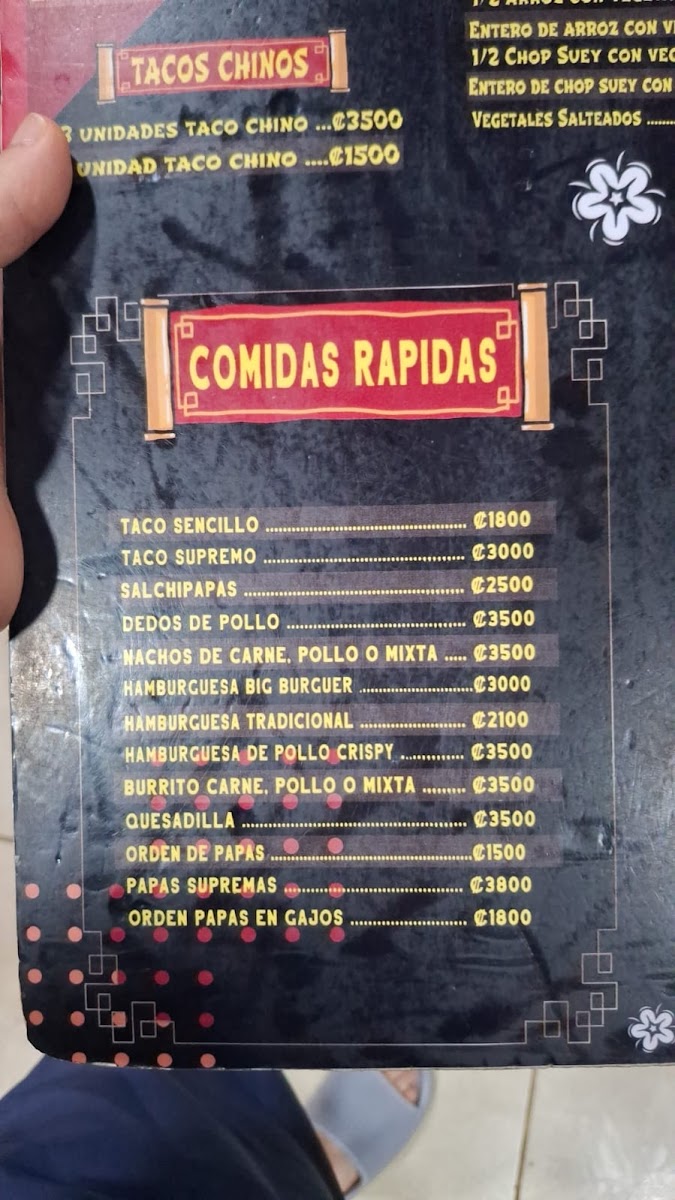 TACOS CHINOS
3 UNIDADES TACO CHINO ...₡3500
UNIDAD TACO CHINO ....₡1500
ENTERO DE ARROZ CON
1/2 CHOP SUEY CON
ENTERO DE CHOP SUEY CON
VEGETALES SALTEADOS ........
COMIDAS RAPIDAS
TACO SENCILLO ........ ₡1800
TACO SUPREMO ........ ₡3000
SALCHIPAPAS ........ ₡2500
DEDOS DE POLLO ........ ₡3500
NACHOS DE CARNE, POLLO O MIXTA ..... ₡3500
HAMBURGUESA BIG BURGUER ........₡3000
HAMBURGUESA TRADICIONAL ........ ₡2100
HAMBURGUESA DE POLLO CRISPY ........ ₡3500
BURRITO CARNE, POLLO O MIXTA ......... ₡3500
QUESADILLA ........ ₡3500
ORDEN DE PAPAS ........₡1500
PAPAS SUPREMAS ........ ₡3800
ORDEN PAPAS EN GAJOS ........ ₡1800